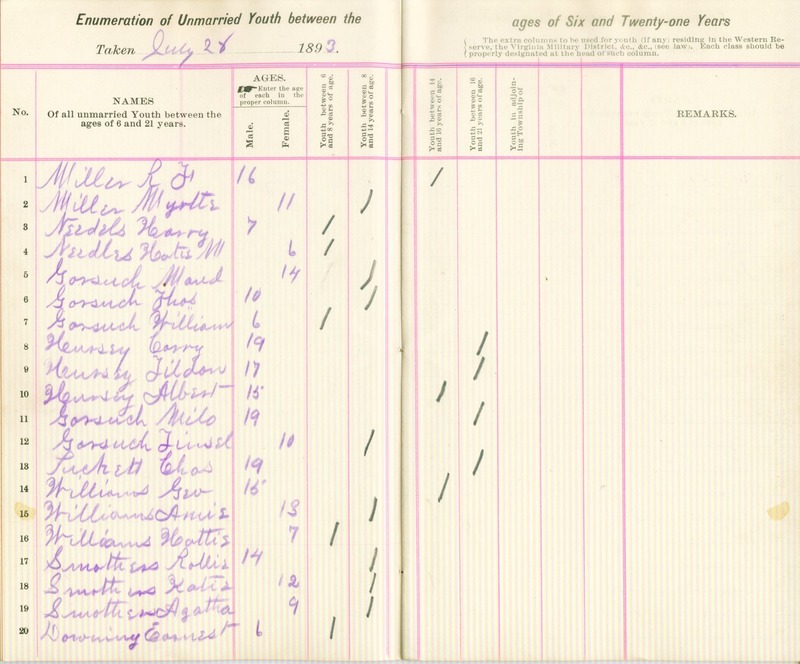 Enumeration of Unmarried Youth between the ages of Six and Twenty-one Years
Taken July 28 1893.
The extra columns to be used for youth (if any) residing in the Western Re-
serve, the Virginia Military District, &c., &c., (see law). Each class should be
properly designated at the head of such column.
No.
NAMES
Of all unmarried Youth between the
ages of 6 and 21 years.
AGES.
Enter the age
of each in the
proper column.
Male.
Female.
Youth between 6
and 8 years of age.
Youth between 8
and 14 years of age.
Youth between 14
and 16 years of age.
Youth between 16
and 21 years of age.
Youth in adjoin-
ing Township of
REMARKS.
1 Miller R F 16 /
2 Miller Myrtte 11 /
3 Needels Harry 7 /
4 Needles Hatie M 6 /
5 Gorsuch Maud 14 /
6 Gorsuch Thos 10 /
7 Gorsuch William 6 /
8 Hursey Corry 19 /
9 Hursey Tildon 17 /
10 Hursey Albert 15 /
11 Gorsuch Milo 19 /
12 Gorsuch Tinsel 10 /
13 Puckett Chas 19 /
14 Williams Geo 15 /
15 Williams Amie 13 /
16 Williams Hattie 7 /
17 Smothers Rollie 14 /
18 Smothers Katie 12 /
19 Smothers Agatha 9 /
20 Downing Earnest 6 /